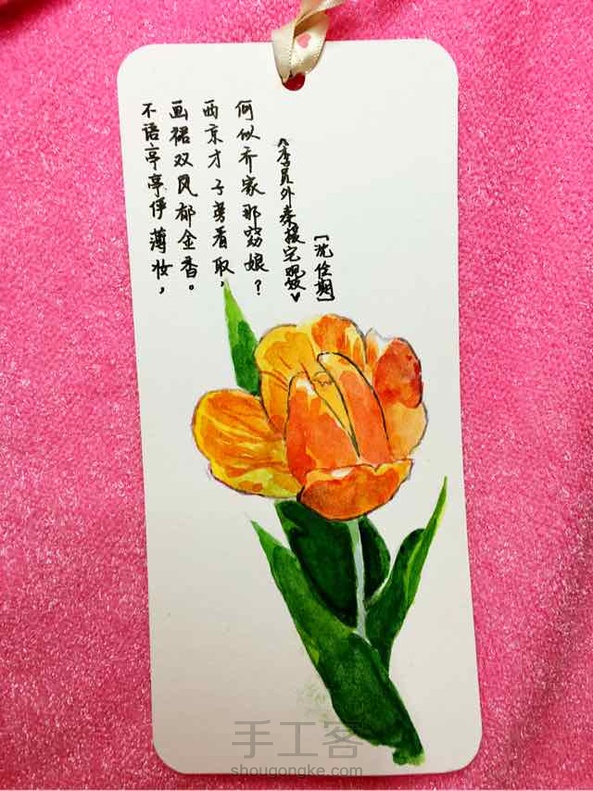 不语亭亭俨薄妆，
画裙双凤郁金香。
西京才子旁看取，
何似乔家那窈娘？
《李员外秦援宅观妓♥
[沈佺期]
手工客
shougongke.com